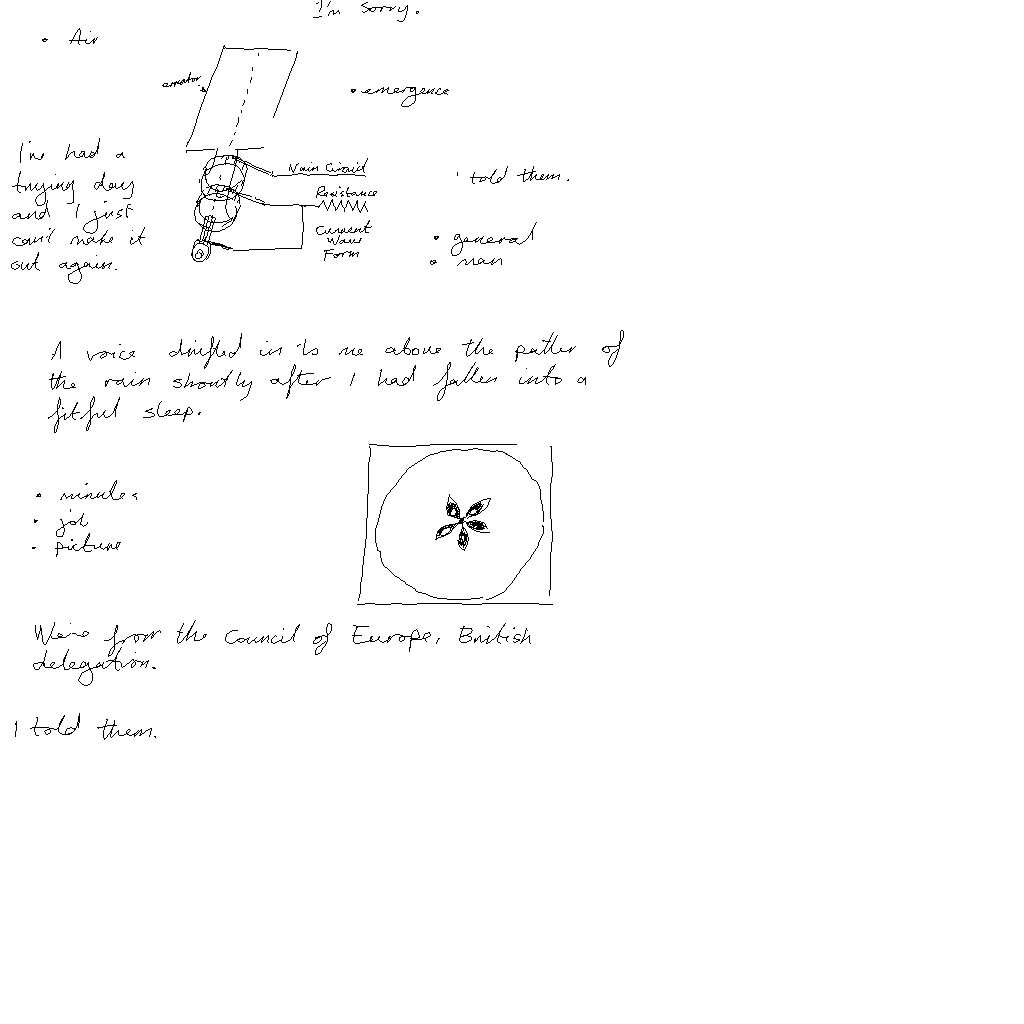 I'm sorry.
• Air
• emergence
I've had a
trying day
and I just
can't make it
out again.
Main Circuit
Resistance
Current
Wave
Form
told them.
• general
• man
A voice drifted in to me above the patter of
the rain shortly after I had fallen into a
fitful sleep.
• minutes
• job
• picture
We're from the Council of Europe, British
delegation.
I told them.